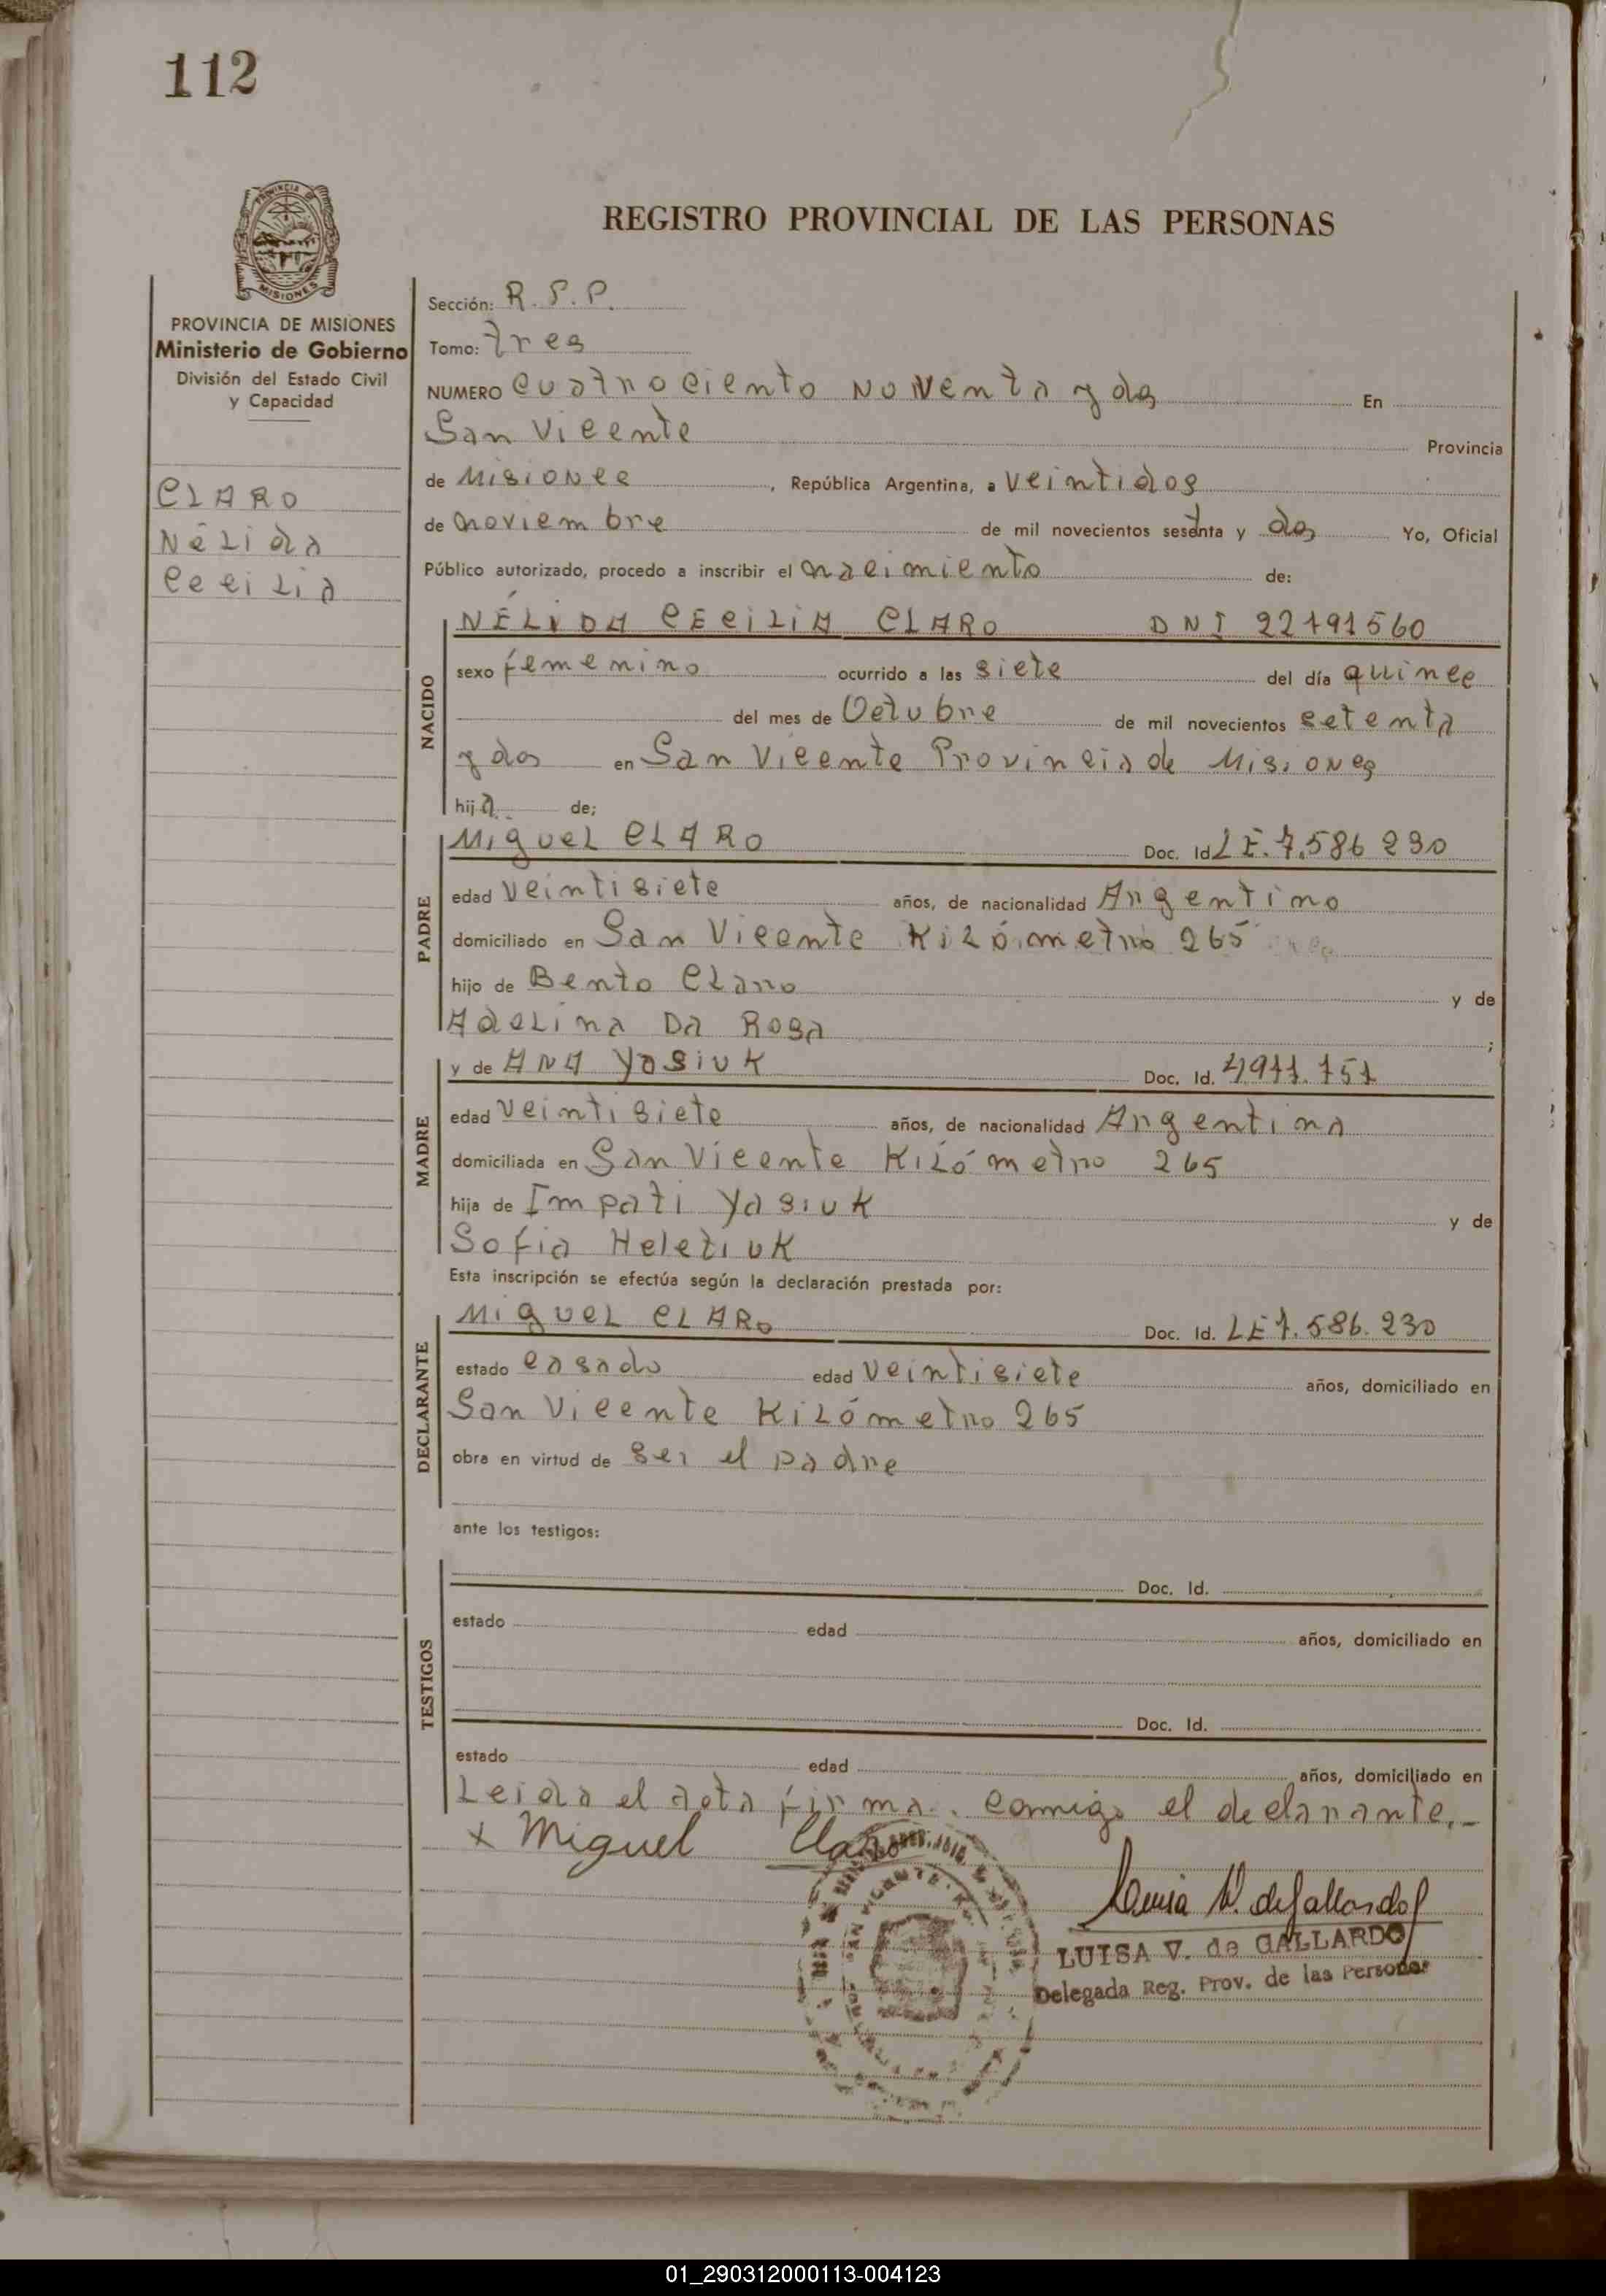 112
PROVINCIA DE
MISIONES
REGISTRO PROVINCIAL DE LAS PERSONAS
PROVINCIA DE MISIONES
Ministerio de Gobierno
División del Estado Civil
y Capacidad
CLARO
Nélida
Cecilia
Sección: R.P.P.
Tomo: tres
NUMERO cuatrociento noventa y dos En
San Vicente Provincia
de Misiones, República Argentina, a veintidos
de noviembre de mil novecientos setenta y dos Yo, Oficial
Público autorizado, procedo a inscribir el nacimiento de:
NACIDO
NÉLIDA CECILIA CLARO DNI 22791560
sexo femenino ocurrido a las siete del día quince
del mes de Octubre de mil novecientos setenta
y dos en San Vicente Provincia de Misiones
hija de;
PADRE
Miguel CLARO Doc. Id LE.7.586 230
edad veintisiete años, de nacionalidad Argentino
domiciliado en San Vicente Kilómetro 265
hijo de Bento Claro y de
Adelina Da Rosa ;
MADRE
y de ANA Yasiuk Doc. Id. 4911.751
edad veintisiete años, de nacionalidad Argentina
domiciliada en San Vicente Kilómetro 265
hija de Impati Yasiuk y de
Sofia Heletiuk
Esta inscripción se efectúa según la declaración prestada por:
DECLARANTE
Miguel CLARO Doc. Id. LE7.586.230
estado casado edad veintisiete años, domiciliado en
San Vicente Kilómetro 265
obra en virtud de ser el padre
ante los testigos:
TESTIGOS
Doc. Id.
estado edad años, domiciliado en
Doc. Id.
estado edad años, domiciliado en
Leida el acta firma. comigo el declarante.-
x Miguel Claro
Luisa V. de Gallardo
LUISA V. de GALLARDO
Delegada Reg. Prov. de las Personas
01_290312000113-004123